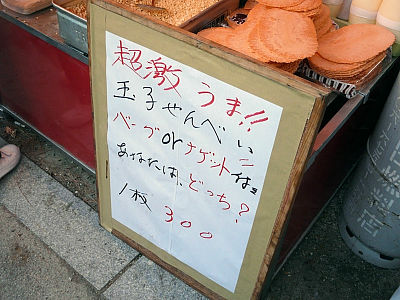 超激うま!!
玉子せんべい
ベーブorナゲット付き
あなたは、どっち?
1枚 300